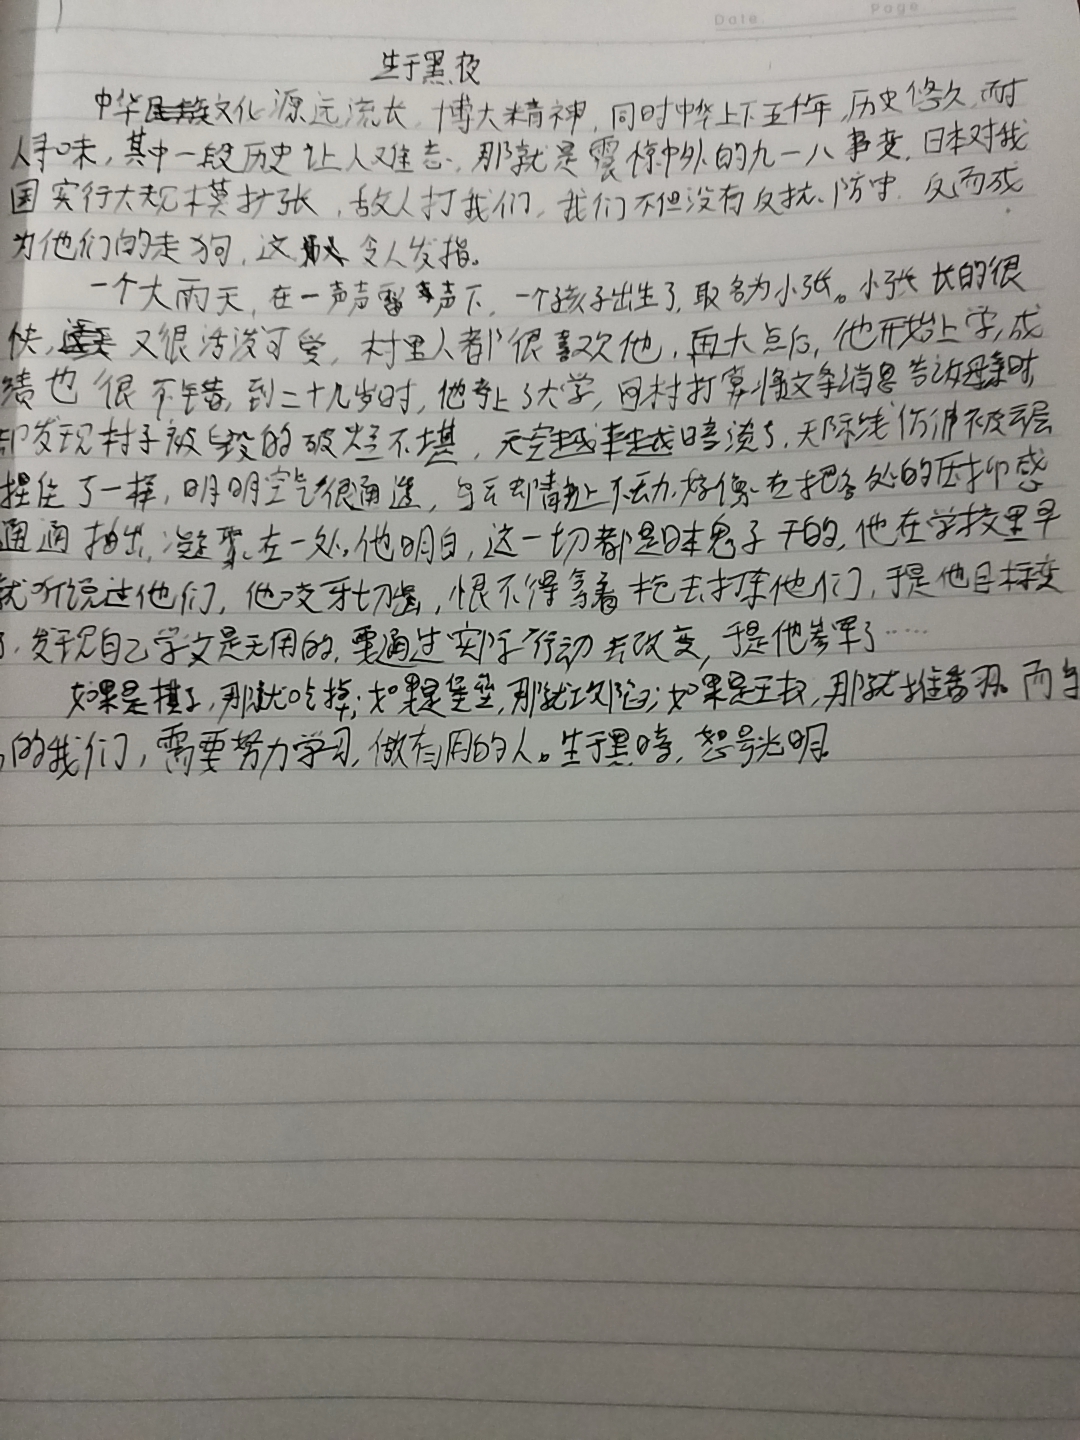 Date Page
生于黑夜
中华文化源远流长,博大精神,同时中华上下五千年,历史悠久,耐
人寻味,其中一段历史让人难忘,那就是震惊中外的九一八事变,日本对我
国实行大规模扩张,敌人打我们,我们不但没有反抗、防守,反而成
为他们的走狗,这令人发指。
一个大雨天,在一声声雷声下,一个孩子出生了,取名为小张。小张长的很
快,又很活泼可爱,村里人都很喜欢他,再大点后,他开始上学,成
绩也很不错,到二十几岁时,他考上了大学,回村打算将文争消息告诉母亲时,
却发现村子被毁的破烂不堪,天空越来越暗淡了,天际线仿佛被云层
捏住了一样,明明空气很通透,乌云却情址不动,好像在把各处的压抑感
通通抽出,凝聚在一处,他明白,这一切都是日本鬼子干的,他在学校里早
就听说过他们,他咬牙切齿,恨不得拿着枪去打杀他们,于是他目标变
了,发现自己学文是无用的,要通过实际行动去改变,于是他参军了……
如果是棋子,那就吃掉;如果是堡垒,那就攻陷;如果是王权,那就推翻。而
的我们,需要努力学习,做有用的人。生于黑暗,怒号光明。